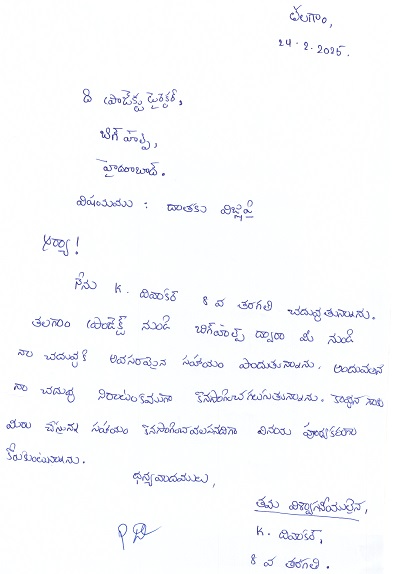 తలగాం,
24-2-2025.
ది ప్రాజెక్టు డైరెక్టర్,
బిగ్ హెల్ప్,
హైదరాబాద్.
విషయము : దాతకు విజ్ఞప్తి
అర్యా!
నేను K. దివాకర్ 8 వ తరగతి చదువుతున్నాను.
తలగాం ప్రాజెక్ట్ నుండి బిగ్‌హెల్ప్ ద్వారా మీ నుండి
నా చదువుకి అవసరమైన సహాయం పొందుతున్నాను. అందువలన
నా చదువు నిరాటంకముగా కొనసాగించగలుగుతున్నాను. కావున నాకు
మీరు చేస్తున్న సహాయం కొనసాగించవలసినదిగా వినయ పూర్వకంగా
కోరుకుంటున్నాను.
ధన్యవాదములు,
తమ విశ్వాసనీయులైన,
K. దివాకర్,
8 వ తరగతి.